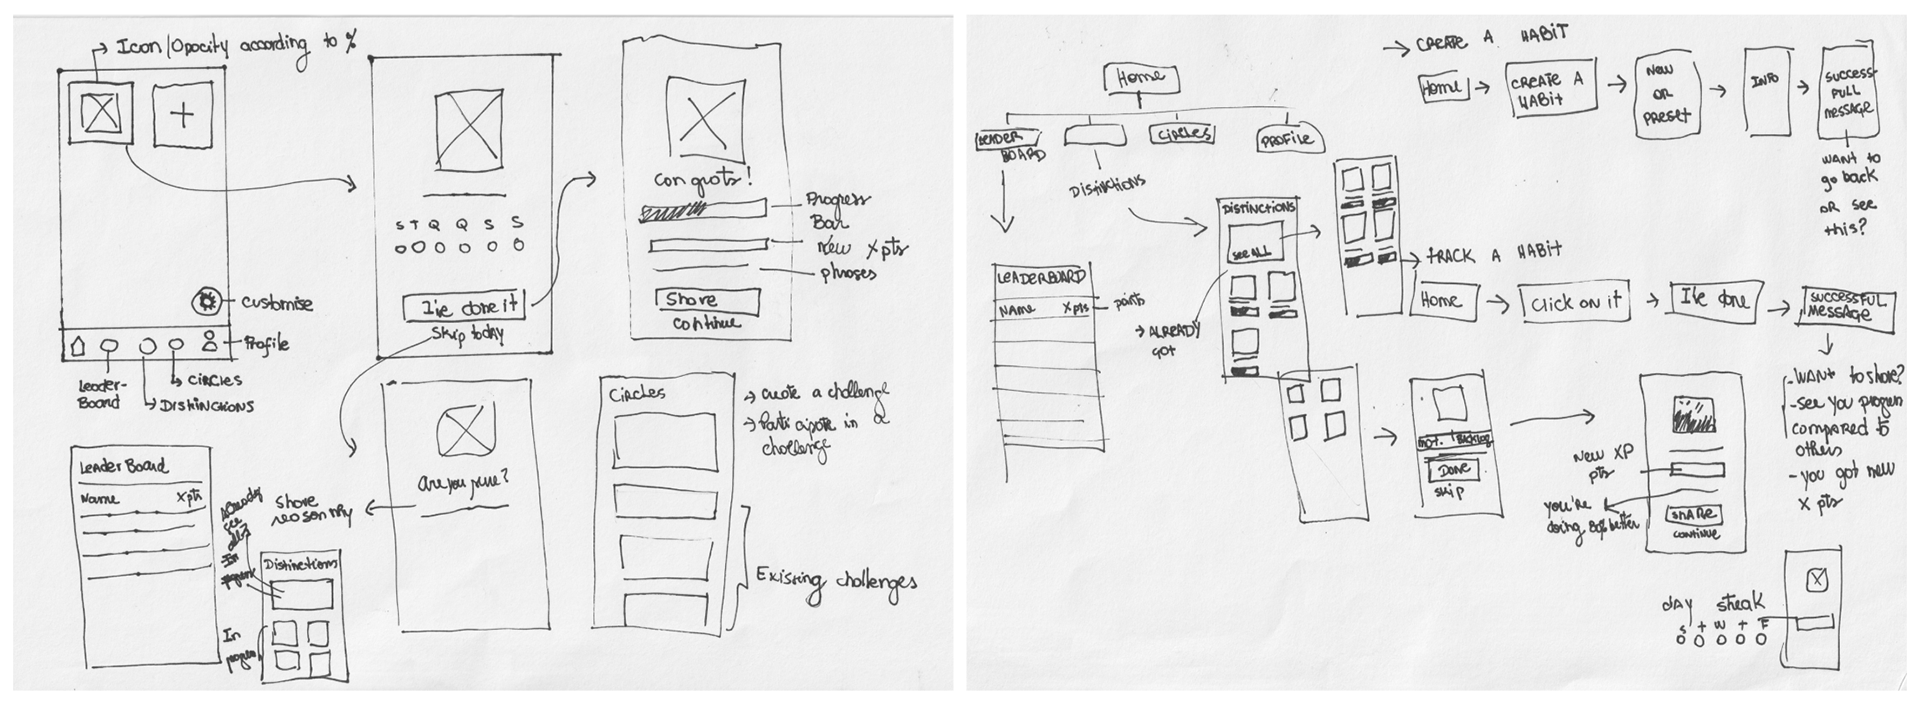 → Icon/Opacity according to %
+
Customise
Profile
Leader-
Board
→ CIRCLES
→ DISTINCTIONS
S T Q Q S S
I've done it
Skip today
Congrats!
Progress
Bar
New Xpts
phrases
Share
continue
Leader Board
Name Xpts
already
see
all?
In
Distinctions
In
Share
reason why
Are you sure?
Circles
→ create a challenge
→ Participate in a
challenge
Existing challenges
→ CREATE A HABIT
Home
CREATE A
HABIT
NEW
OR
PRESET
INFO
SUCCESS-
FULL
MESSAGE
WANT to
go back
OR see
this?
Home
LEADER
BOARD
CIRCLES
PROFILE
DISTINCTIONS
DISTINCTIONS
see ALL
→ ALREADY
GOT
LEADERBOARD
NAME Xpts
points
→ tRACK A HABIT
Home
Click on it
I've done
SUCCESSFUL
MESSAGE
- WANT to share?
- see you progress
compared to
others
- you got new
X pts
BACKLOG
DONE
skip
New XP
pts
you're
doing 80% better
SHARE
CONTINUE
day steak
S T W T F